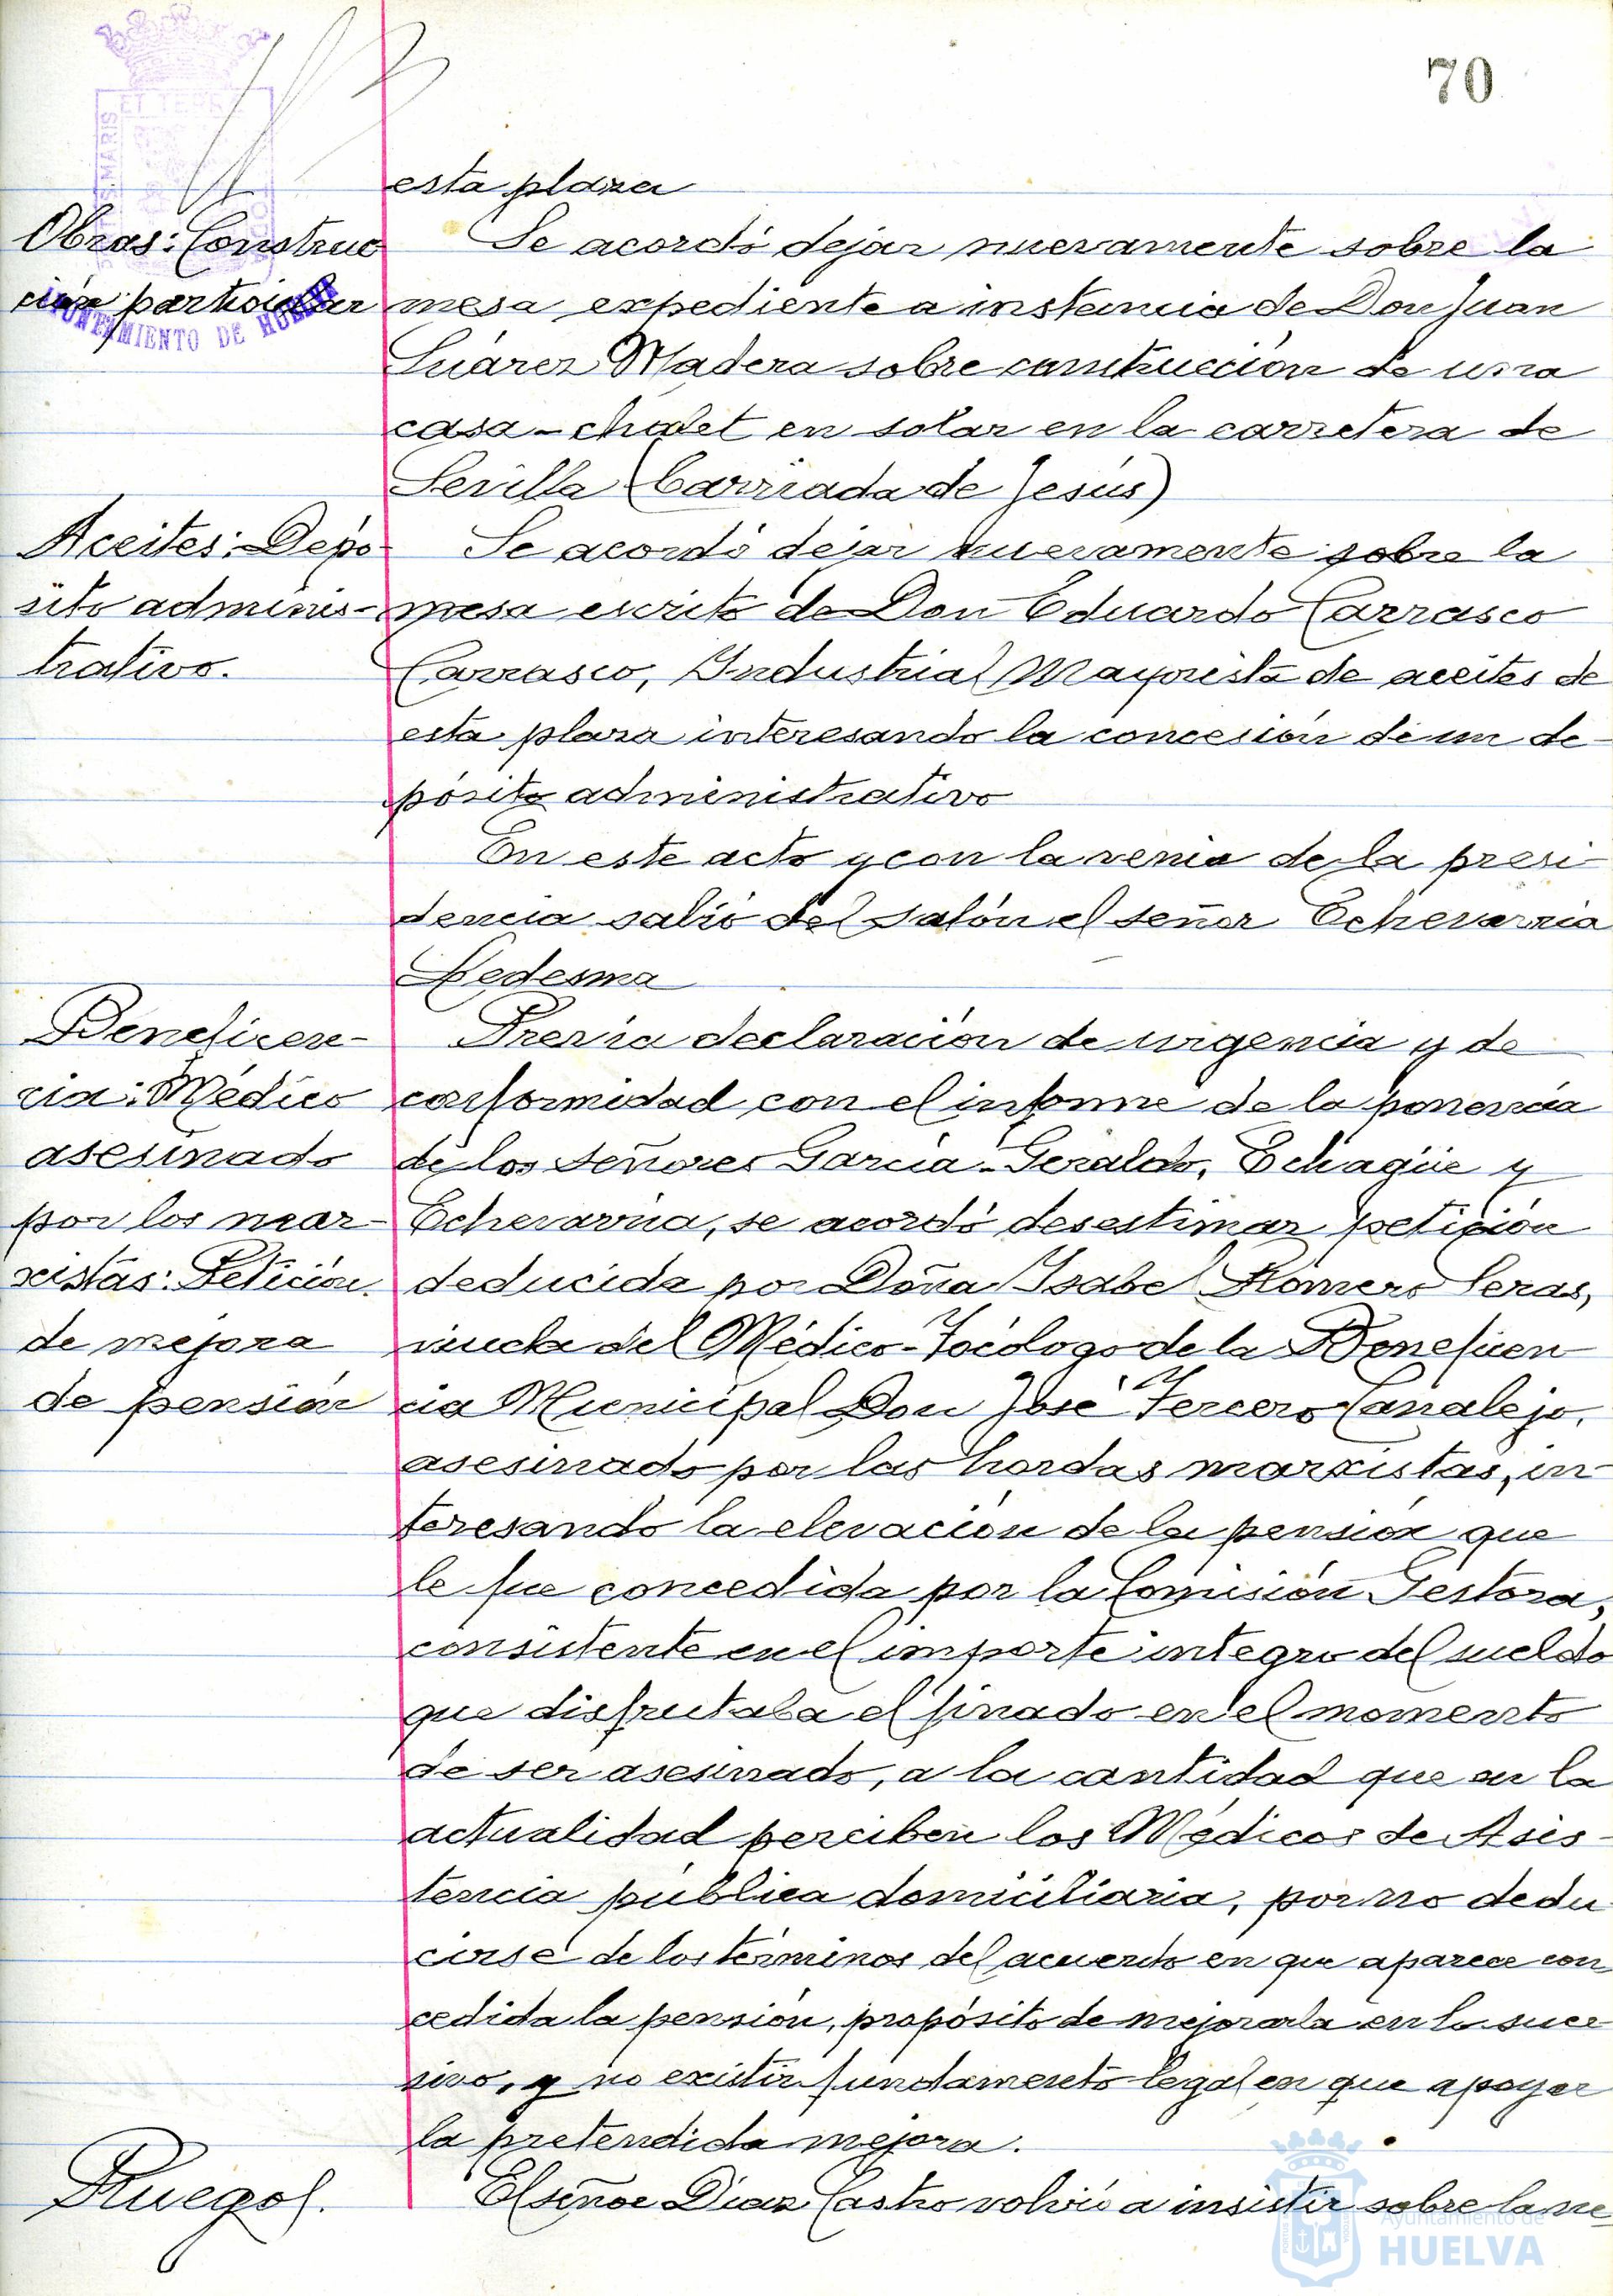 70
esta plaza
Obras: Construc
ción particular
Se acordó dejar nuevamente sobre la
mesa expediente a instancia de Don Juan
Suárez Madera sobre construcción de una
casa-chalet en solar en la carretera de
Sevilla (barriada de Jesús)
Aceites: Depó
sito adminis-
trativo.
Se acordó dejar nuevamente sobre la
mesa escrito de Don Eduardo Carrasco
Carrasco, Industrial Mayorista de aceites de
esta plaza interesando la concesión de un de-
pósito administrativo
En este acto y con la venia de la presi-
dencia salió del salón el señor Echevarria
Ledesma
Beneficen-
cia: Médico
asesinado
por los mar-
xistas: Petición
de mejora
de pensión
Previa declaración de urgencia y de
conformidad con el informe de la ponencia
de los señores Garcia-Geraldo, Echagüe y
Echevarria, se acordó desestimar petición
deducida por Doña Isabel Romero Ceras,
viuda del Médico-Tocólogo de la Beneficen
cia Municipal Don José Tercero Canalejo,
asesinado por las hordas marxistas, in-
teresando la elevación de la pensión que
le fue concedida por la Comisión Gestora,
consistente en el importe integro del sueldo
que disfrutaba el finado en el momento
de ser asesinado, a la cantidad que en la
actualidad perciben los Médicos de Asis-
tencia pública domiciliaria, por no dedu
cirse de los términos del acuerdo en que aparece con
cedida la pensión, propósito de mejorarla en lo suce
sivo, y no existir fundamento legal en que apoyar
la pretendida mejora.
Ruegos.
El señor Diaz Castro volvió a insistir sobre la ne-
AYUNTAMIENTO DE HUELVA
Ayuntamiento de
HUELVA